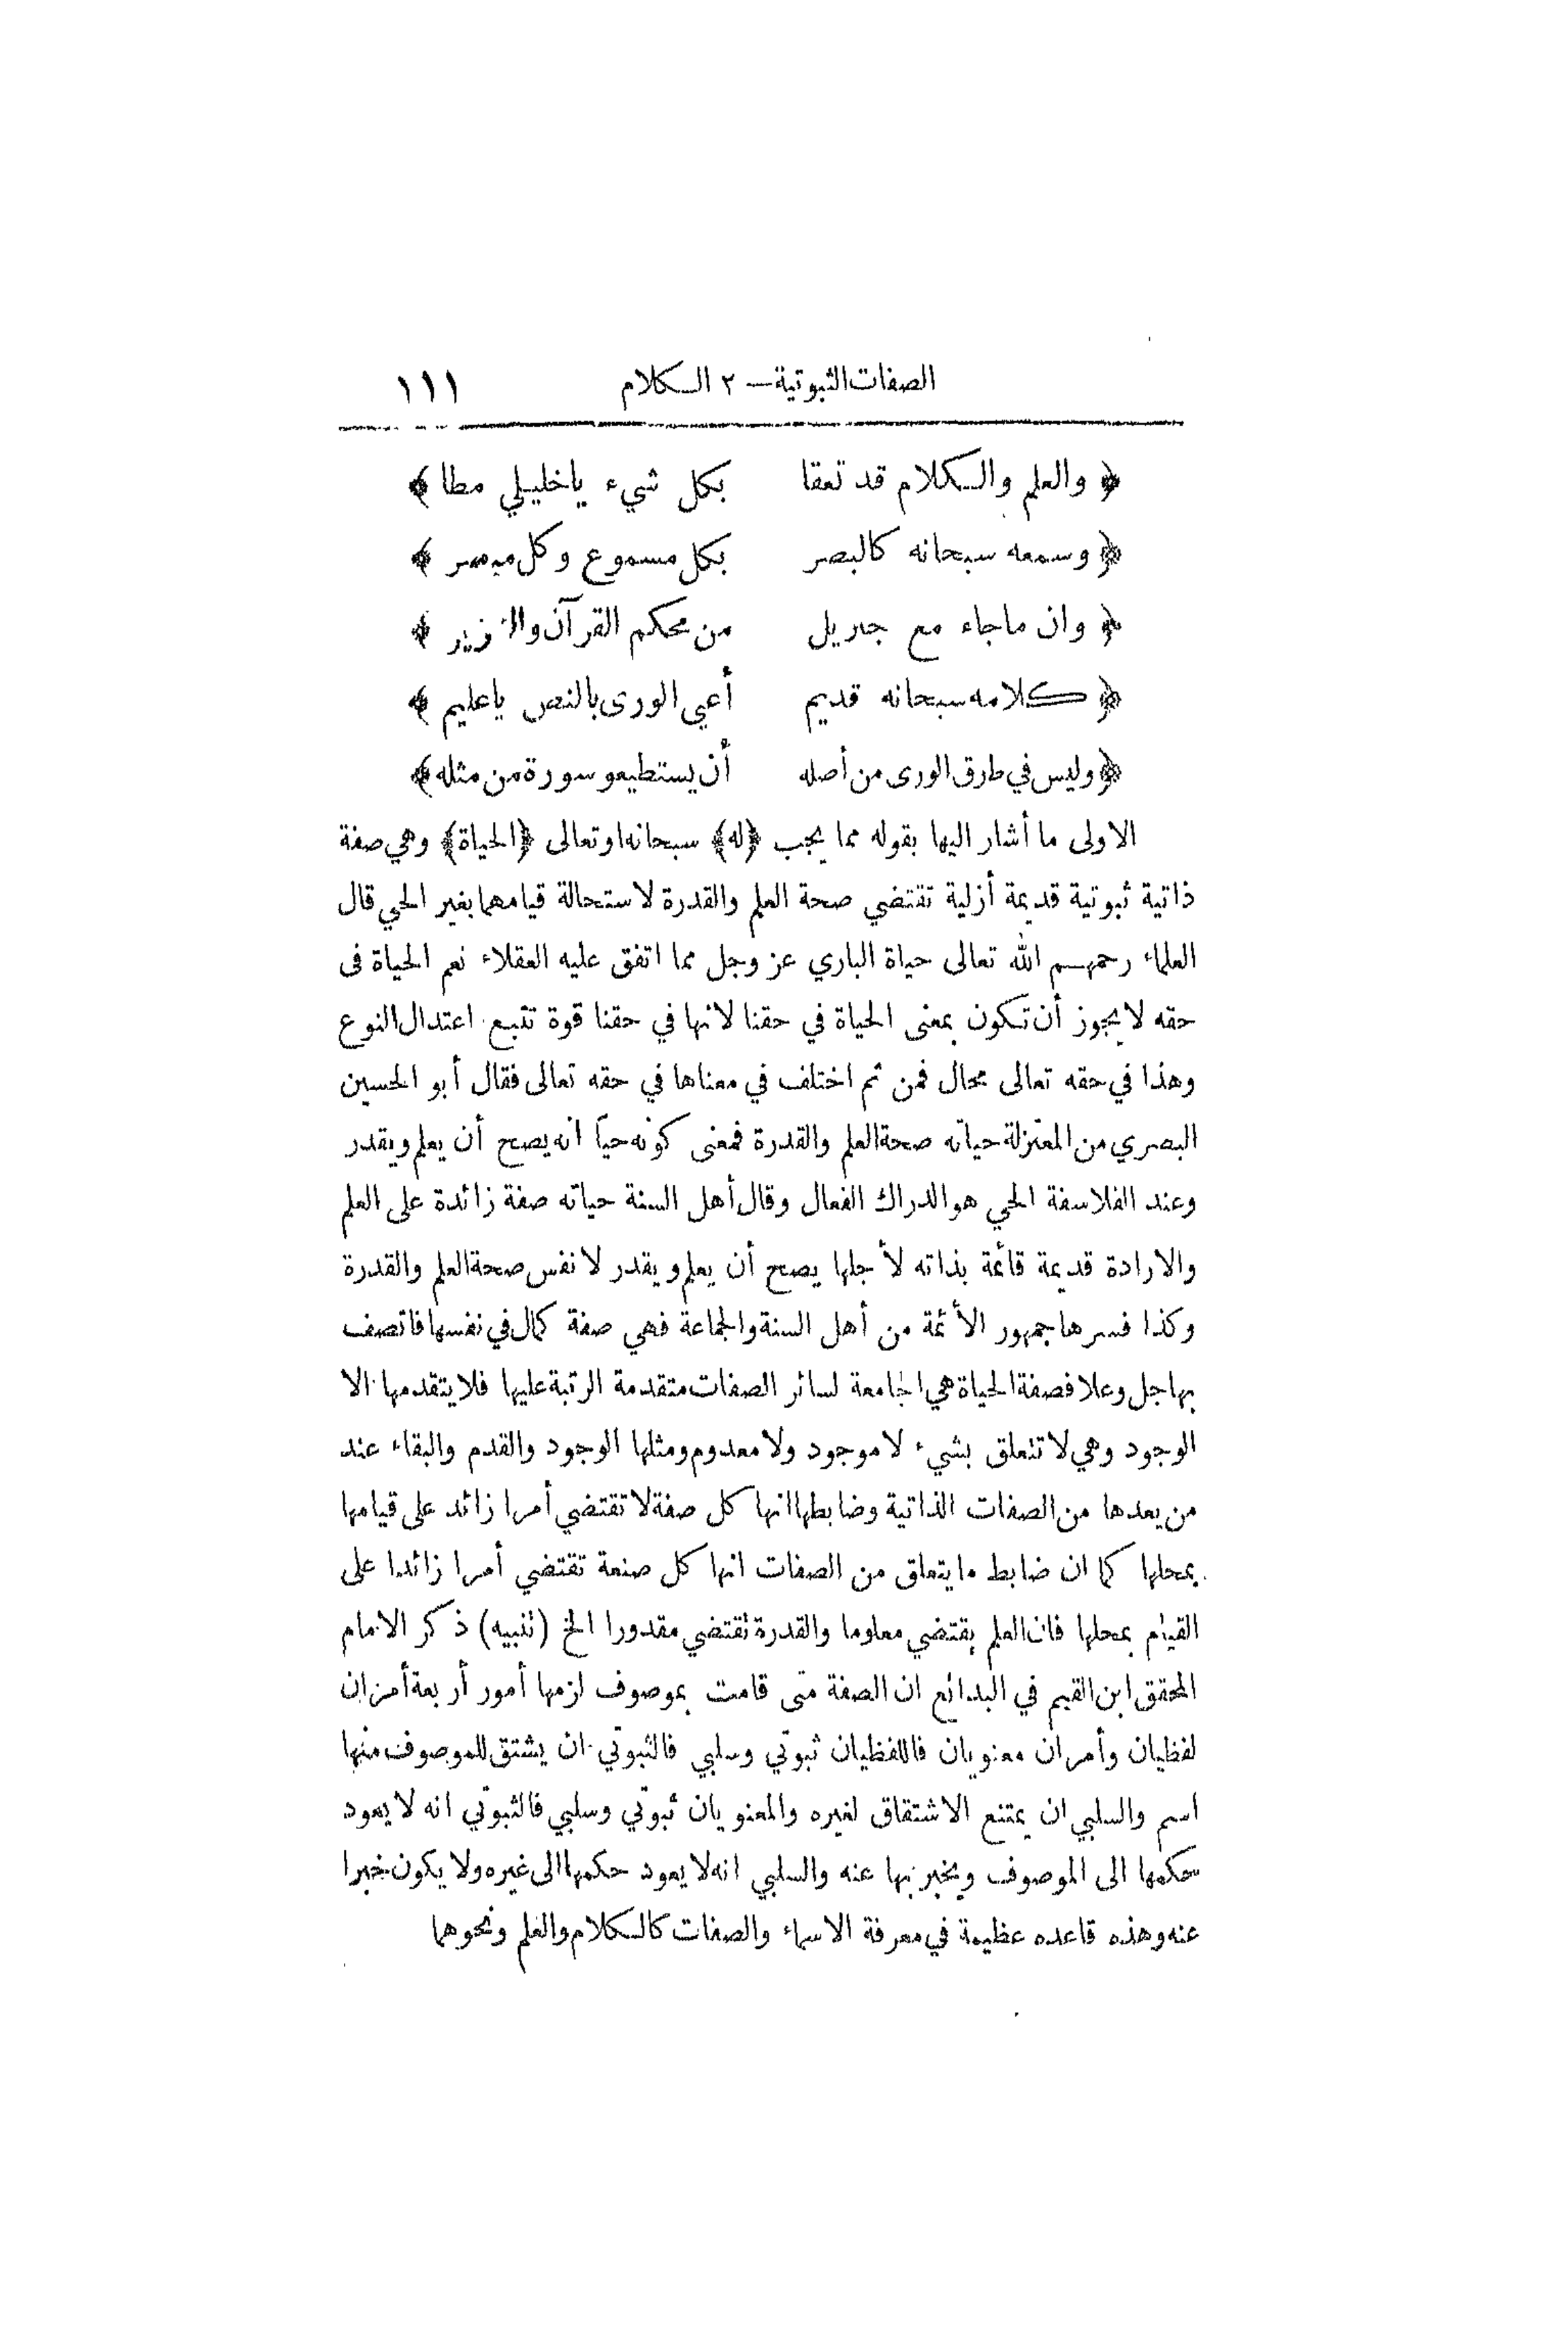 الصفات الثبوتية — ٢ الكلام ١١١
﴿ والعلم والكلام قد تعقا بكل شيء ياخليلي مطا ﴾
﴿ وسمعه سبحانه كالبصر بكل مسموع وكل مبصر ﴾
﴿ وان ماجاء مع جبريل من محكم القرآن ﴾
﴿ كلامه سبحانه قديم أعيى الورى بالنص ياعليم ﴾
﴿ وليس في طارق الورى من أصله أن يستطيعو سورة من مثله ﴾
الاولى ما أشار اليها بقوله مما يجب ﴿له﴾ سبحانه اوتعالى ﴿الحياة﴾ وهي صفة
ذاتية ثبوتية قديمة أزلية تقتضي صحة العلم والقدرة لاستحالة قيامهما بغير الحي قال
العلماء رحمهم الله تعالى حياة الباري عز وجل مما اتفق عليه العقلاء نعم الحياة فى
حقه لايجوز أن تكون بمعنى الحياة في حقنا لانها في حقنا قوة تتبع اعتدال النوع
وهذا في حقه تعالى محال فمن ثم اختلف في معناها في حقه تعالى فقال أبو الحسين
البصري من المعتزلة حياته صحة العلم والقدرة فمعنى كونه حيا انه يصح أن يعلم ويقدر
وعند الفلاسفة الحي هو الدراك الفعال وقال أهل السنة حياته صفة زائدة على العلم
والارادة قديمة قائمة بذاته لأجلها يصح أن يعلم ويقدر لا نفس صحة العلم والقدرة
وكذا فسرها جمهور الأئمة من أهل السنة والجماعة فهي صفة كمال في نفسها فاتصف
بها جل وعلا فصفة الحياة هي الجامعة لسائر الصفات متقدمة الرتبة عليها فلا يتقدمها الا
الوجود وهي لا تتعلق بشيء لا موجود ولا معدوم ومثلها الوجود والقدم والبقاء عند
من يعدها من الصفات الذاتية وضابطها انها كل صفة لا تقتضي أمرا زائد على قيامها
بمحلها كما ان ضابط ما يتعلق من الصفات انها كل صنعة تقتضي أمرا زائدا على
القيام بمحلها فان العلم يقتضي معلوما والقدرة تقتضي مقدورا الخ (تنبيه) ذكر الامام
المحقق ابن القيم في البدائع ان الصفة متى قامت بموصوف لزمها أمور أربعة أمران
لفظيان وأمران معنويان فاللفظيان ثبوتي وسلبي فالثبوتي ان يشتق للموصوف منها
اسم والسلبي ان يمتنع الاشتقاق لغيره والمعنويان ثبوتي وسلبي فالثبوتي انه لا يعود
حكمها الى الموصوف ويخبر بها عنه والسلبي انه لا يعود حكمها الى غيره ولا يكون خبرا
عنه وهذه قاعده عظيمة في معرفة الاسماء والصفات كالكلام والعلم ونحوهما